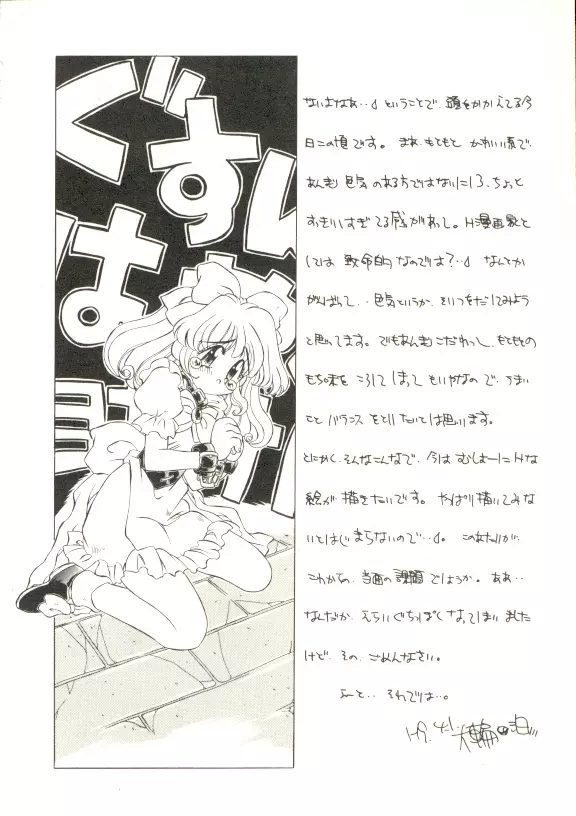 ぐすん
は
ないよなあ…♩ということで、頭をかかえてる今
日この頃です。まあ、もともと かわいい系で
あんまし色気のある方ではないにしろ、ちょっと
すっきりしすぎてる感があって、H漫画家と
しては致命的なのでは?…♩ なんとか
がんばって…色気というか、そいつをだしてみよう
と思ってます。でもあんましこだわって、もともとの
もち味をころしてしまってもいやなので、うまい
ことバランスをとりたいとは思います。
とにかく、そんなこんなで、今はむしょーにHな
絵が描きたいです。やっぱり描いてみな
いとはじまらないので…♩。このあたりが、
これからの、当面の課題でしょうか。ああ…
なんだか、えらいぐちっぽくなってしまいました
けど、その、ごめんなさい。
えーと… それでは…。